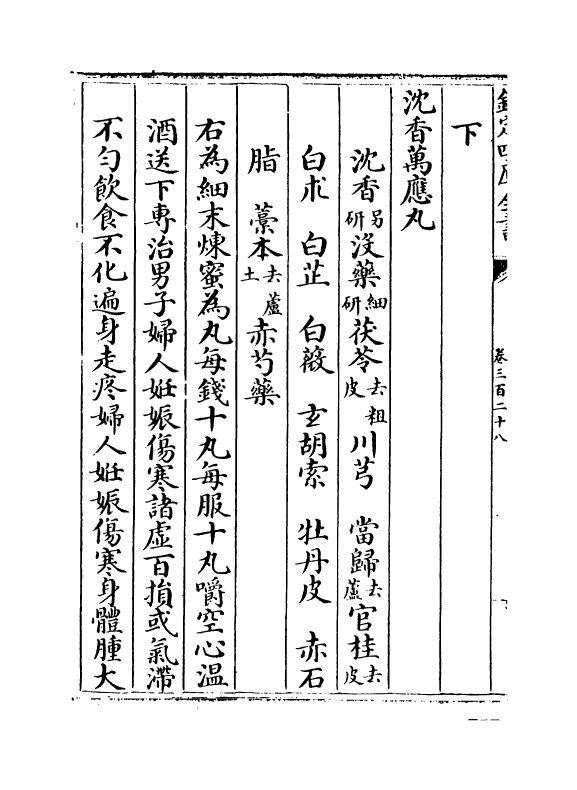 欽定四庫全書
卷三百二十八
下
沈香萬應丸
沈香另研没藥細研茯苓去粗皮川芎　當歸去蘆官桂去皮
白朮　白芷　白薇　玄胡索　牡丹皮　赤石
脂　藁本去蘆土赤芍藥
右為細末煉蜜為丸每錢十丸每服十丸嚼空心温
酒送下專治男子婦人姙娠傷寒諸虚百損或氣滯
不勻飲食不化遍身走疼婦人姙娠傷寒身體腫大